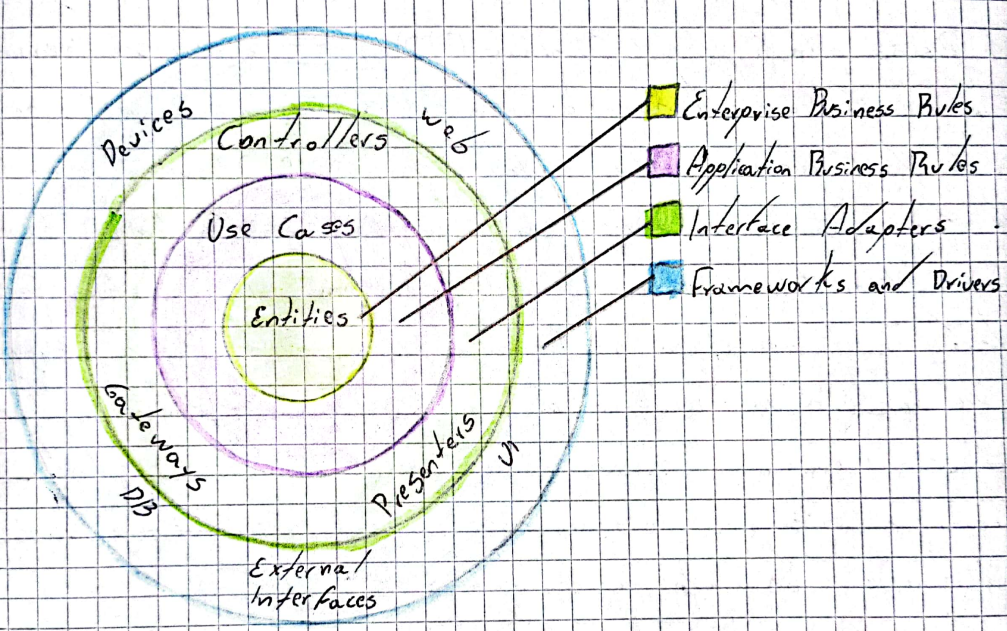 Devices
Web
Controllers
Use Cases
Entities
Gateways
DB
Presenters
UI
External
Interfaces
Enterprise Business Rules
Application Business Rules
Interface Adapters
Frameworks and Drivers